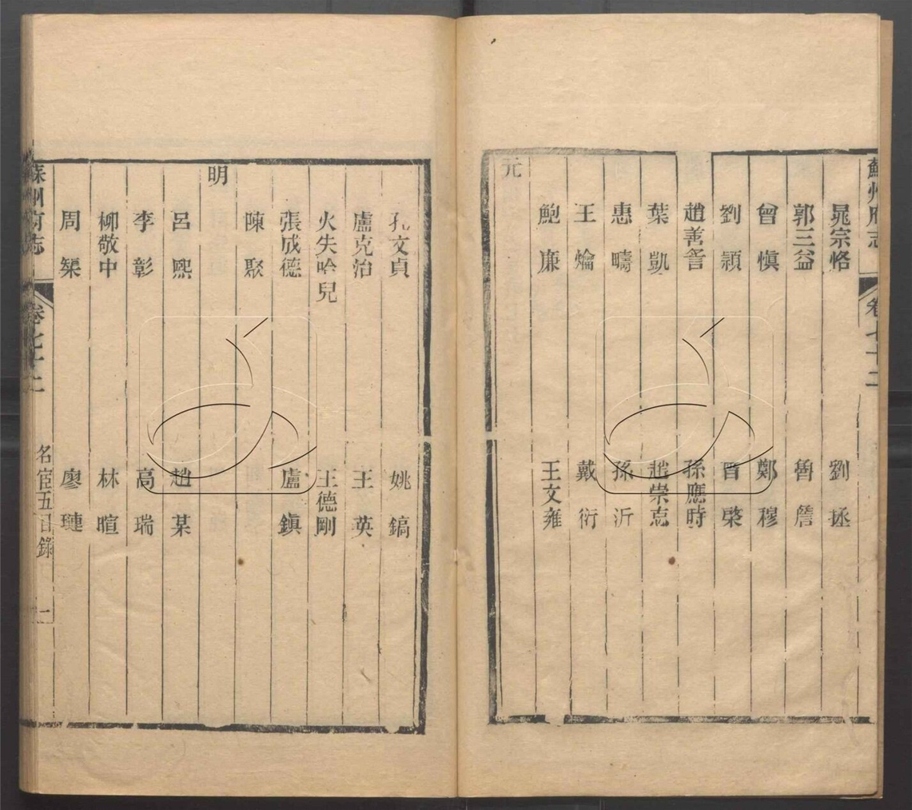 蘇州府志 卷七十二
晁宗恪 劉拯
郭三益 魯詹
曾愼 鄭穆
劉穎 曾棨
趙善 孫應時
葉凱 趙崇
惠疇 孫沂
王爚 戴衍
鮑廉 王文雍
元
孔文貞 姚鎬
盧克治 王英
火失哈兒 王德剛
張成德 盧鎮
陳聚
明
呂熙 趙某
李彰 高瑞
柳敬中 林暄
周榘 廖璉
蘇州府志 卷七十二 名宦五目錄 一